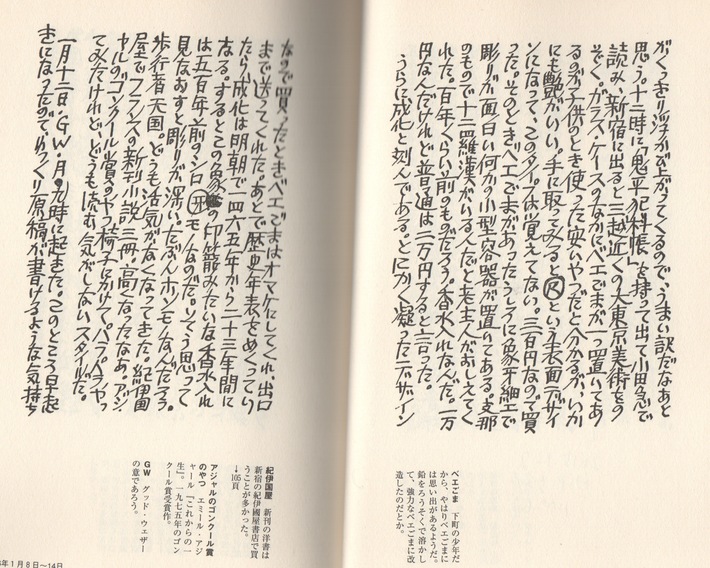 がくっきり浮かび上がってくるので、うまい訳だなあと
思う。十二時に「鬼平犯科帳」を持って出て小田急で
読み、新宿に出ると三越近くの大東京美術をの
ぞく。ガラス・ケースのなかにベエごまが一つ置いてあ
るのが子供のとき使った安いやつだと分かるが、いか
にも艶がいい。手に取ってみると という表面デザイ
ンになって、このタイプは覚えてない。三百円なので買
った。そのときベエごまがあったうしろに象牙細工で
彫りが面白い何かの小型容器が置いてある。支那
のもので十二羅漢がいるんだと老主人がおしえてく
れた。百年くらい前のものだろう。香水入れなんだ。一万
円なんだけれど普通は二万円すると言った。
うらに成化と刻んである。とにかく凝ったデザイン
ベエごま　下町の少年だ
から、やはりベエごまに
は思い出があるようだ。
鉛をろうそくで溶かし
て、強力なベエごまに改
造したのだとか。
なので買ったときベエごまはオマケにしてくれ、出口
まで送ってくれた。あとで歴史年表をめくってい
たら成化は明朝で一四六五年から二十三年間に
なる。するとこの象 の印籠みたいな香水入れ
は五百年前のシロモノなんのだ。そう思って
見なおすと彫りが深いだぶんホンモノなんだろう。
歩行者天国。どうも活気がなくなってきた。紀伊國
屋でフランスの新刊小説三冊。高くなったなあ。アジ
ャルのゴンクール賞のやつ椅子にかけてパラパラやっ
てみたけれど、どうも読む気がしないスタイルだ。
一月十二日・GW・月。九時に起きた。このところ早起
きになったので、ゆっくり原稿が書けるような気持ち
紀伊國屋　新刊の洋書は
新宿の紀伊國屋書店で買
うことが多かった。
→105頁
アジャルのゴンクール賞
のやつ　エミール・アジ
ャール『これからの一
生』。一九七五年のゴン
クール賞受賞作。
GW　グッド・ウェザー
の意であろう。
年1月8日〜14日